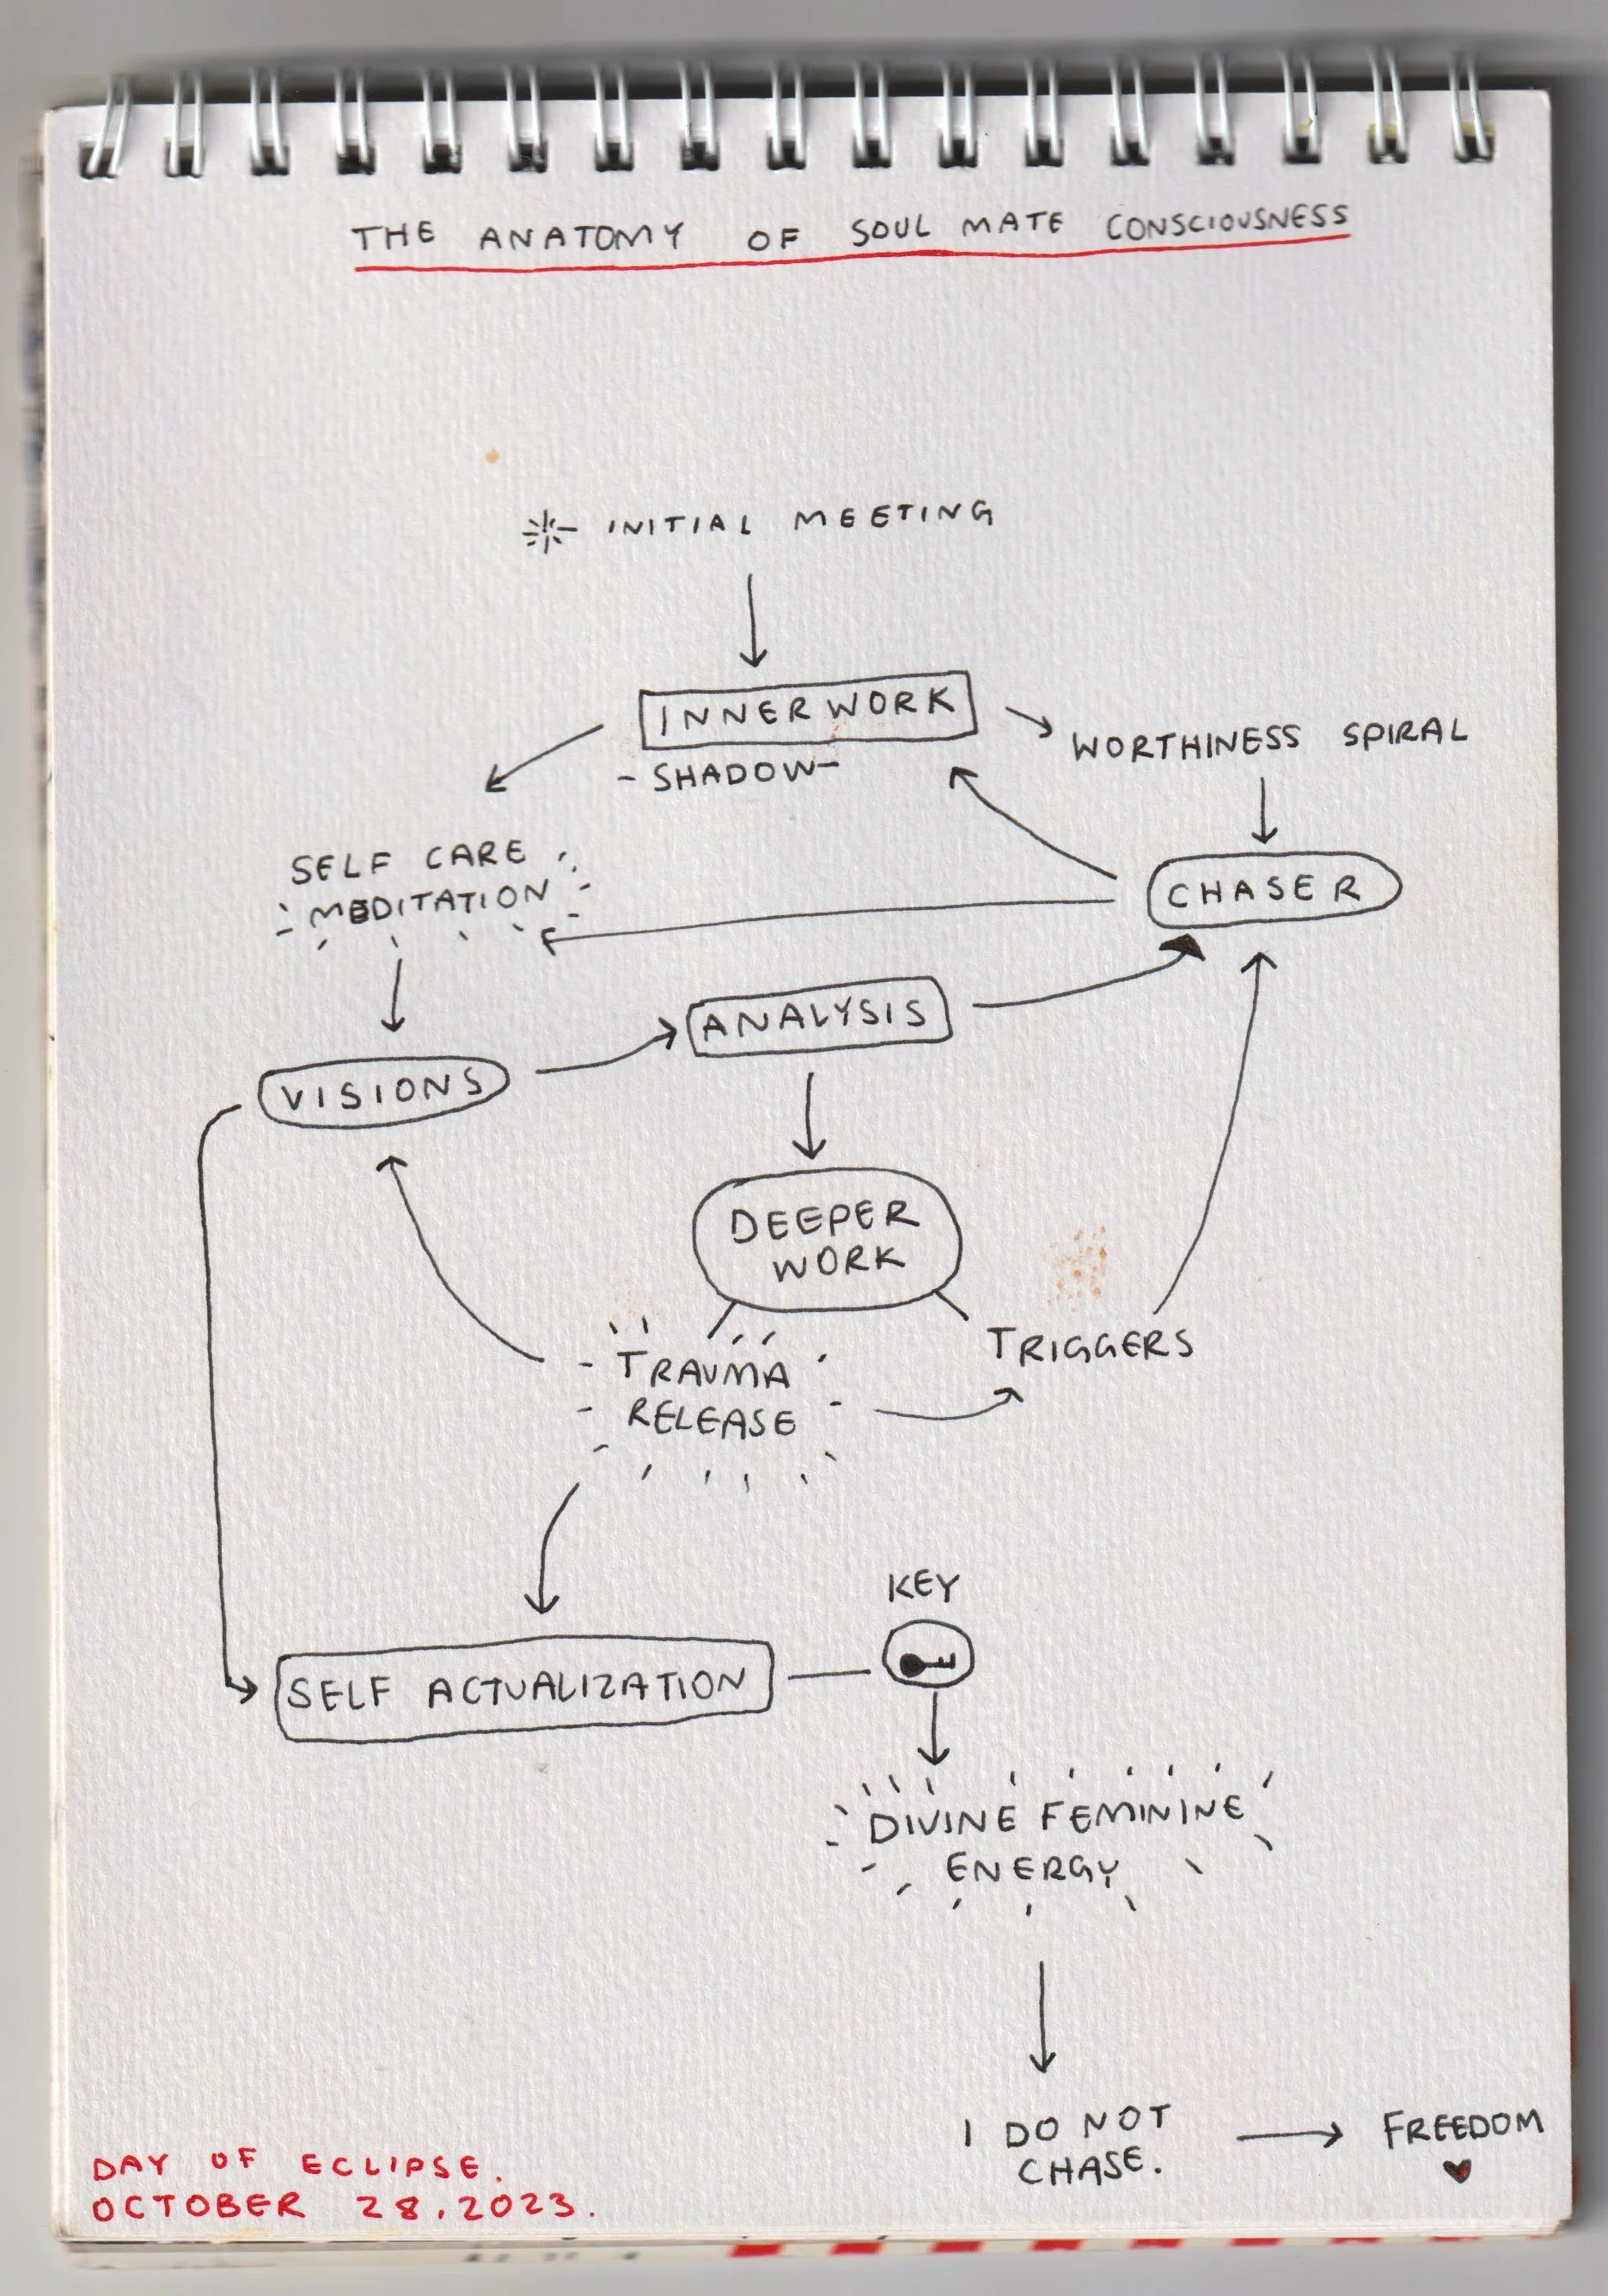 THE ANATOMY OF SOUL MATE CONSCIOUSNESS
INITIAL MEETING
INNER WORK
- SHADOW -
WORTHINESS SPIRAL
SELF CARE
MEDITATION
CHASER
ANALYSIS
VISIONS
DEEPER
WORK
TRAUMA
RELEASE
TRIGGERS
KEY
SELF ACTUALIZATION
DIVINE FEMININE
ENERGY
I DO NOT
CHASE.
FREEDOM
DAY OF ECLIPSE.
OCTOBER 28.2023.